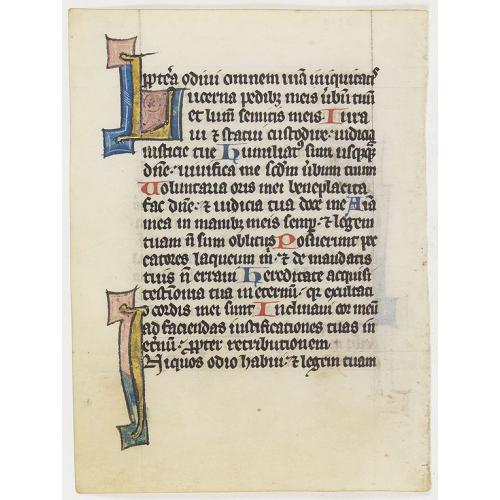 ppt̃ea odiui omnem uiā iniquitat̾
Lucerna pedibꝫ meis ũbũ tuũ
et lum̃ semitis meis Iura
ui ⁊ statui custodire iudicia
iusticie tue Humiliat᷒ sum usq̃q̃ꝫ
dñe uiuifica me sc̃dm ũbum tuum
Voluntaria oris mei beneplacita
fac dñe ⁊ iudicia tua doce me Aīa
mea in manibꝫ meis semp̱ ⁊ legem
tuam ñ sum oblitus Posuerunt pec
catores laqueum m̊ ⁊ de mandatis
tuis ñ erraui Hereditate acquisi
testīonia tua in eternũ qr̃ exultati
o cordis mei sunt Inclinaui cor meũ
ad faciendas iustificationes tuas in
et̃nũ ppter retributionem
Niquos odio habui ⁊ legem tuam